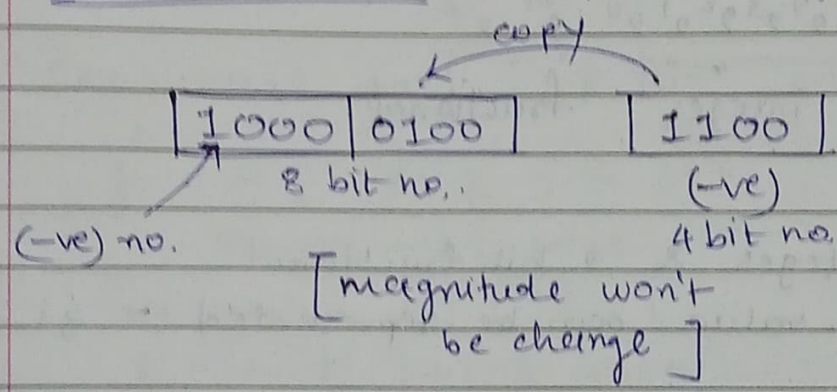 copy
1000 0100 1100
8 bit no. (-ve)
(-ve) no. 4 bit no.
[magnitude won't
be change]